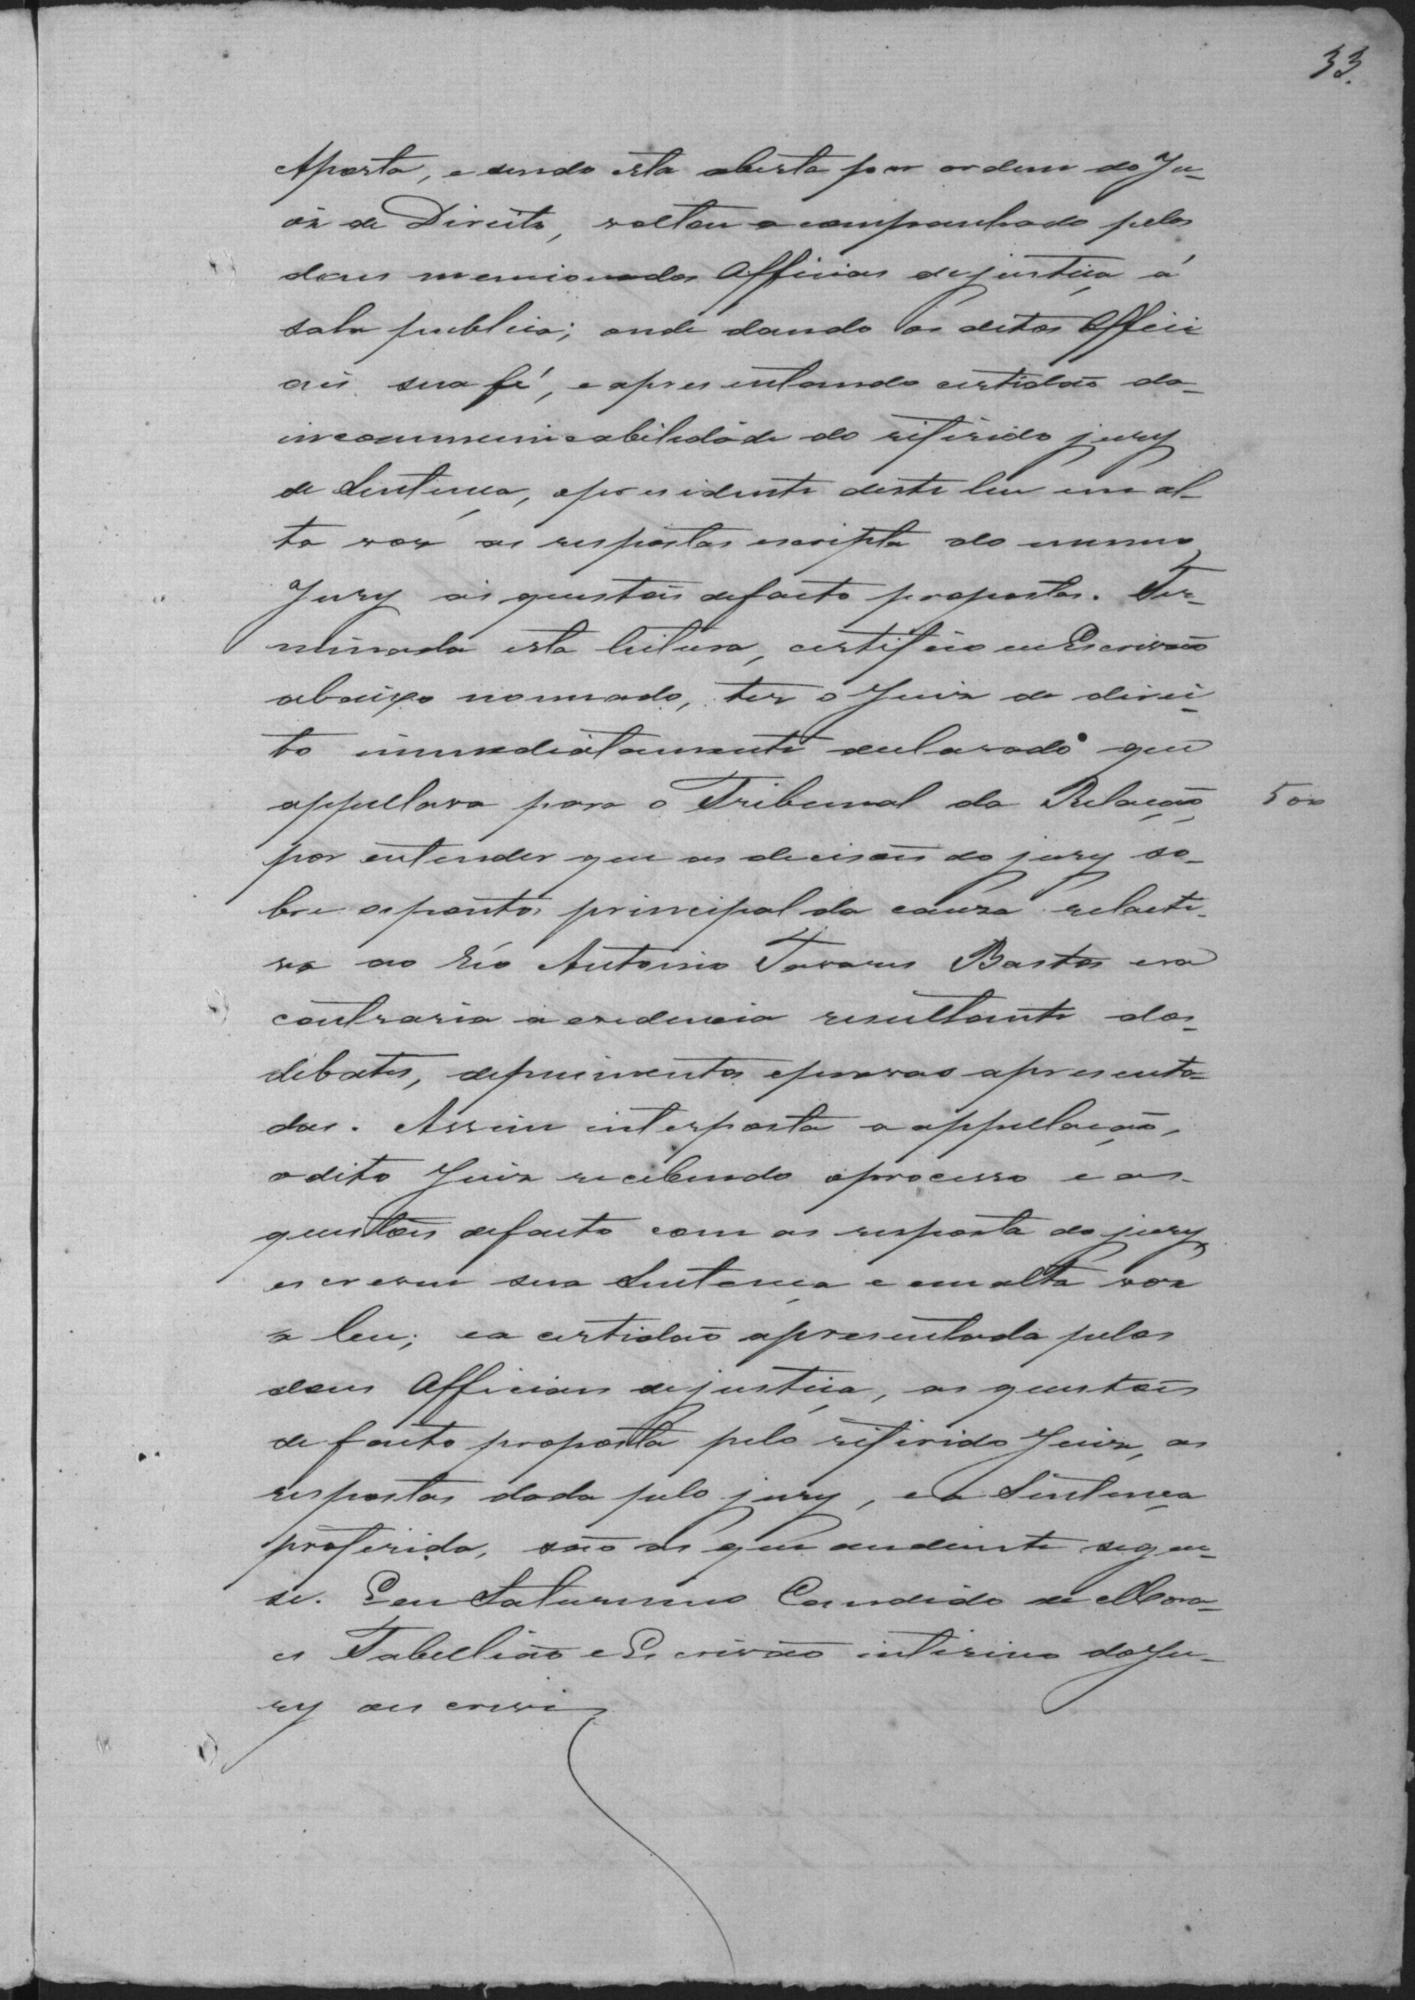 33.
Aporta, e sendo esta aberta por ordem do Ju-
iz de Direito, voltou acompanhado pelos
dous mencionados Officiaes de justiça á
sala publica; onde dando os ditos Offici
aes sua fé, e apresentando certidão da
incommunicabilidade do referido jury
de Sentença, o presidente deste leu em al-
ta voz as respostas escripta do mesmo
Jury ás questões de facto propostas. Ter-
minada esta leitura, certifico eu Escrivão
abaixo nomeado, ter o Juiz de direi-
to immediatamente declarado que
appellava para o Tribunal da Relação, 500
por entender que as decisões do jury so-
bre o ponto principal da causa relacti-
va ao réo Antonio Tavares Bastos era
contraria a evidencia resultante dos
debates, depuimentos e provas apresenta-
das. Assim interposta a appellação,
o dito Juiz recebendo o processo e as
questões de facto com as resposta do jury,
escreveu sua Sentença e em alta voz
a leu; e a certidão apresentada pelos
dous Officiaes de justiça, as questões
de facto proposta pelo referido Juiz, as
respostas dada pelo jury, e a Sentença
proferida, são as que andiente segue-
se. Eeu Saturnino Candido de Mora-
es Tabellião e Escrivão intirino do Ju-
ry o escrevi